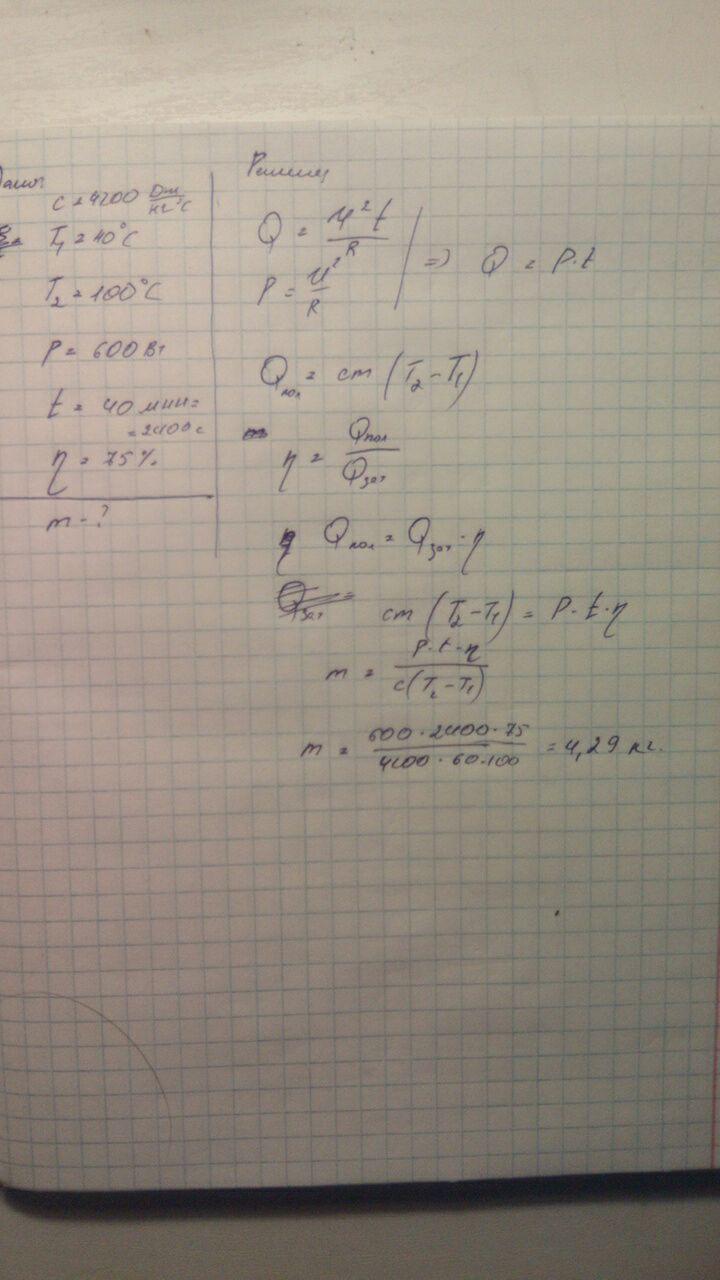 Дано
c = 4200 Дж/кг°C
T₁ = 40°C
T₂ = 100°C
P = 600 Вт
t = 40 мин =
= 2400 с
η = 75%
m - ?
Решение
Q = U²t/R
P = U²/R
=> Q = P·t
Qпол = cm (T₂ - T₁)
η = Qпол/Qзат
Qпол = Qзат · η
cm (T₂ - T₁) = P · t · η
m = P · t · η / c(T₂ - T₁)
m = 600 · 2400 · 75 / 4200 · 60 · 100 = 4,29 кг.